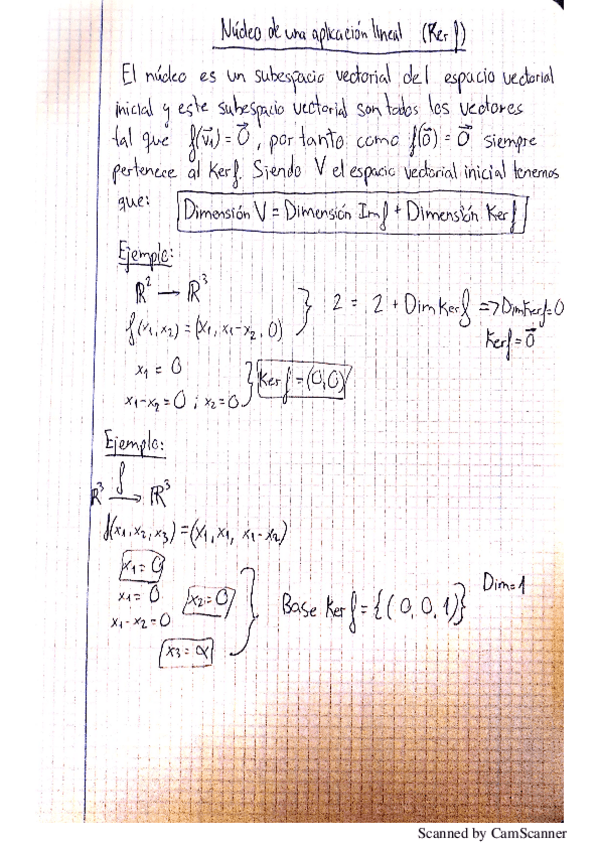 Núcleo de una aplicación lineal (Ker f)
El núcleo es un subespacio vectorial del espacio vectorial
inicial y este subespacio vectorial son todos los vectores
tal que f(v⃗₁) = 0⃗, por tanto como f(0⃗) = 0⃗ siempre
pertenece al Kerf. Siendo V el espacio vectorial inicial tenemos
que: Dimensión V = Dimensión Imf + Dimensión Kerf
Ejemplo:
ℝ² → ℝ³
f(x₁, x₂) = (x₁, x₁-x₂, 0) } 2 = 2 + Dim Kerf => Dim Kerf = 0
Kerf = 0⃗
x₁ = 0
x₁-x₂ = 0 ; x₂ = 0 } Kerf = (0,0)
Ejemplo:
ℝ³ f→ ℝ³
f(x₁, x₂, x₃) = (x₁, x₁, x₁-x₂)
x₁ = 0
x₁ = 0 x₂ = 0
x₁-x₂ = 0
x₃ = α } Base Kerf = {(0,0,1)} Dim = 1
Scanned by CamScanner